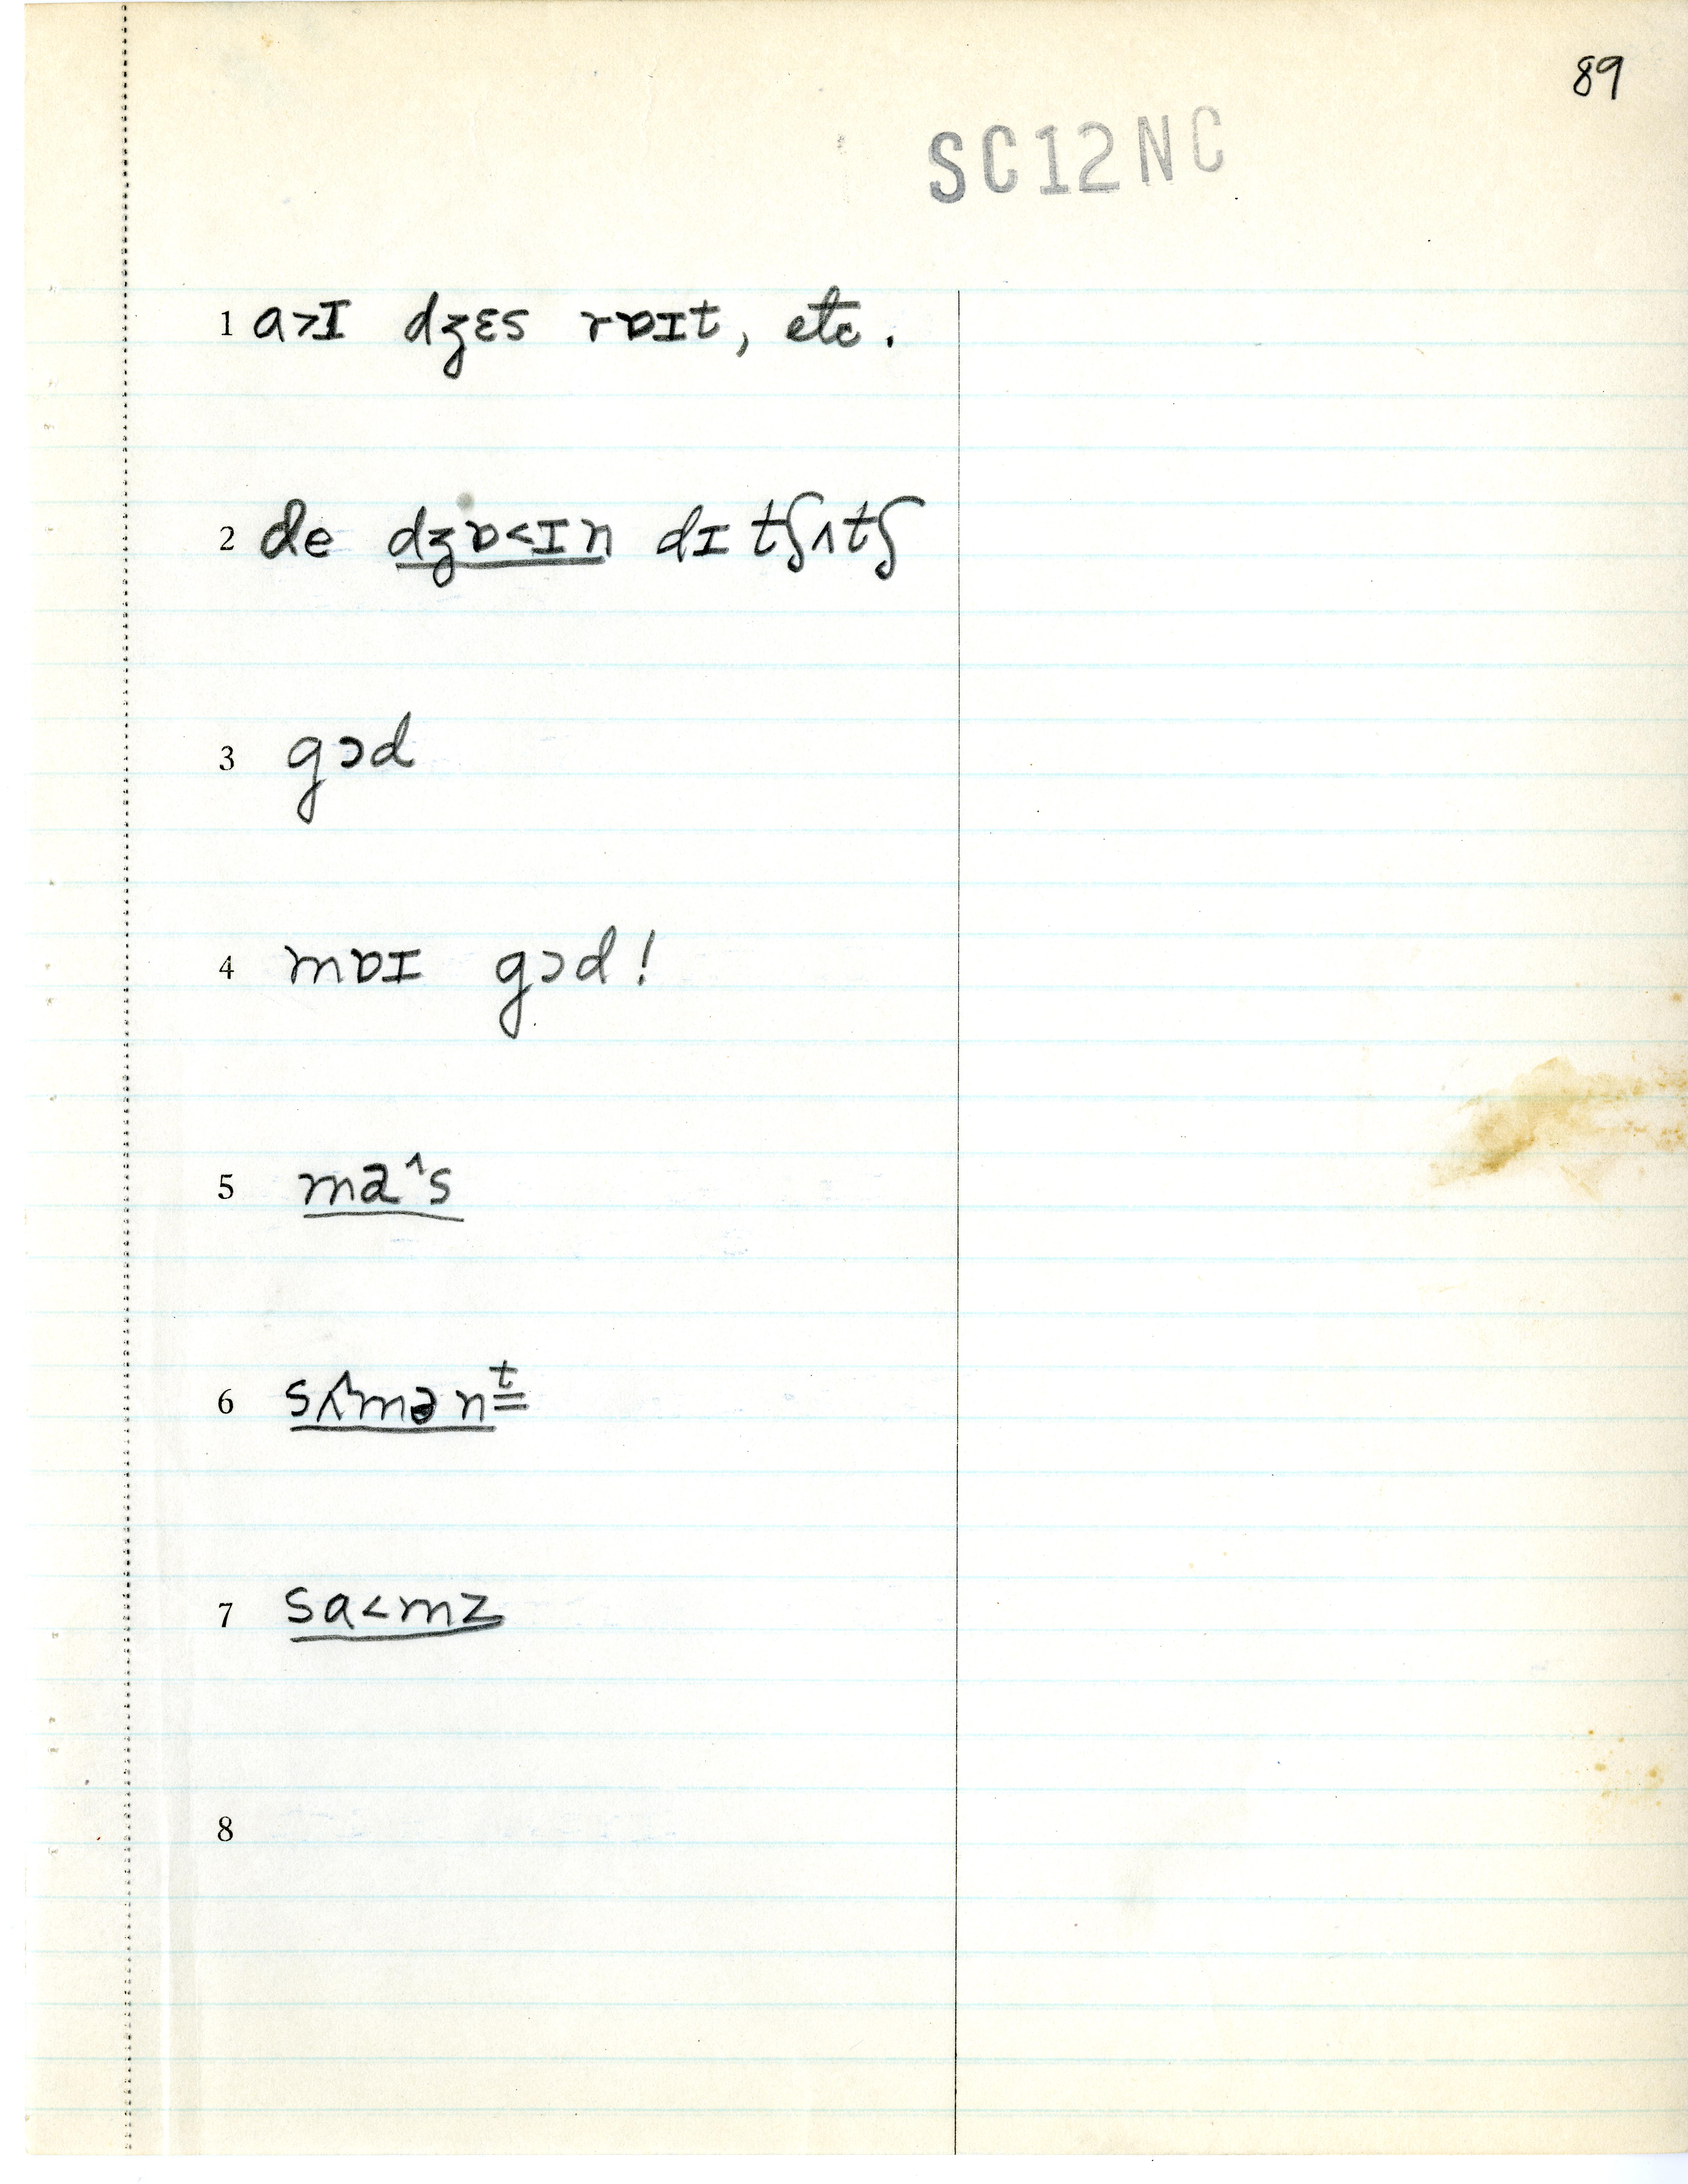 89
SC12NC
1 a>ɪ dʒɛs rɒɪt, etc.
2 de dʒɒ<ɪn dɪ tʃʌtʃ
3 gɔd
4 mɒɪ gɔd!
5 ma^s
6 sʌ^mənᵗ
7 sa<mz
8